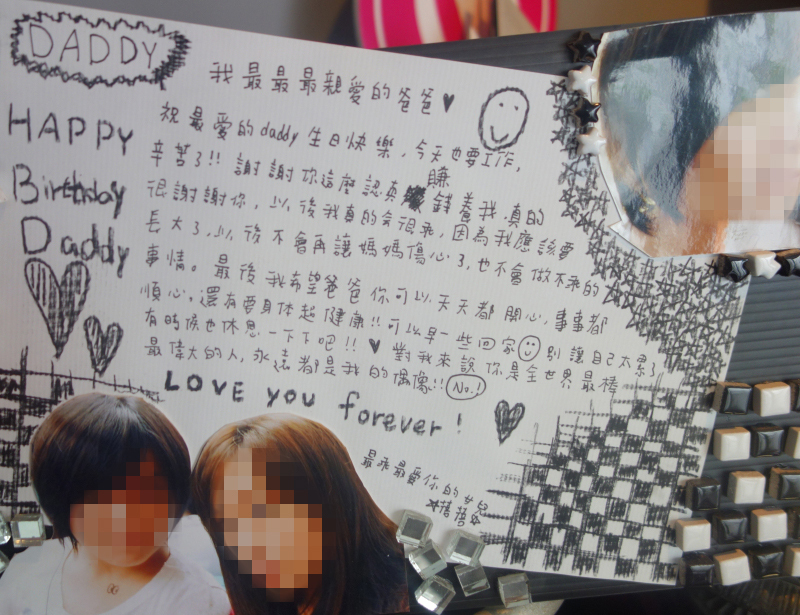 DADDY
我最最最親愛的爸爸♥
HAPPY
Birthday
Daddy
祝最愛的daddy生日快樂,今天也要工作,
辛苦了!!謝謝你這麼認真賺錢養我.真的
很謝謝你,以後我真的會很乖,因為我應該要
長大了,以後不會再讓媽媽傷心了,也不會做不乖的
事情。最後我希望爸爸你可以天天都開心,事事都
順心,還有要身体超健康!!可以早一些回家☺別讓自己太累了
有時候也休息一下下吧!!♥對我來說你是全世界最棒
最偉大的人,永遠都是我的偶像!!No.1
LOVE you forever!
最乖最愛你的女兒